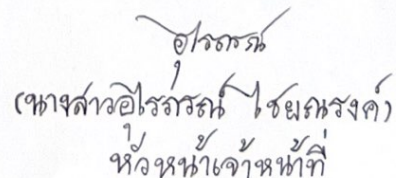 อุไรภรณ์
(นางสาวอุไรภรณ์ ไชยณรงค์)
หัวหน้าเจ้าหน้าที่